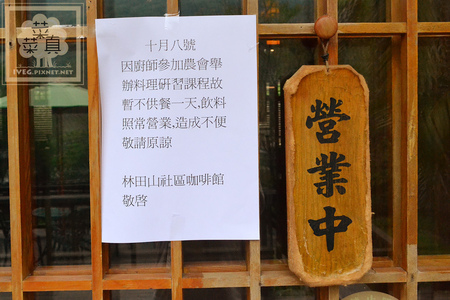 菜真
IVEG.PIXNET.NET
十月八號
因廚師參加農會舉
辦料理研習課程故
暫不供餐一天,飲料
照常營業,造成不便
敬請原諒
林田山社區咖啡館
敬啓
營業中